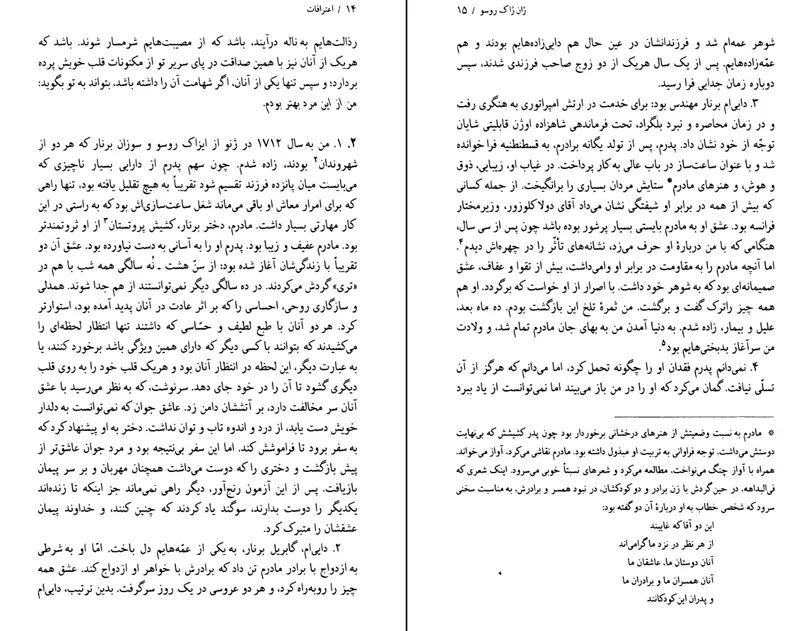 ۱۴ / اعترافات
رذالت‌هایم به ناله درآیند، باشد که از مصیبت‌هایم شرمسار شوند. باشد که
هریک از آنان نیز با همین صداقت در پای سریر تو از مکنونات قلب خویش پرده
بردارد؛ و سپس تنها یکی از آنان، اگر شهامت آن را داشته باشد، بتواند به تو بگوید:
من از این مرد بهتر بودم.
۲. ۱. من به سال ۱۷۱۲ در ژنو از ایزاک روسو و سوزان برنار که هر دو از
شهروندان۲ بودند، زاده شدم. چون سهم پدرم از دارایی بسیار ناچیزی که
می‌بایست میان پانزده فرزند تقسیم شود تقریباً به هیچ تقلیل یافته بود، تنها راهی
که برای امرار معاش او باقی می‌ماند شغل ساعت‌سازی‌اش بود که به راستی در این
کار مهارتی بسیار داشت. مادرم، دختر برنار، کشیش پروتستان۳ از او ثروتمندتر
بود. مادرم عفیف و زیبا بود. پدرم او را به آسانی به دست نیاورده بود. عشق آن دو
تقریباً با زندگی‌شان آغاز شده بود: از سنّ هشت ـ نُه سالگی همه شب با هم در
«تری» گردش می‌کردند. در ده سالگی دیگر نمی‌توانستند از هم جدا شوند. همدلی
و سازگاری روحی، احساسی را که بر اثر عادت در آنان پدید آمده بود، استوارتر
کرد. هر دو آنان با طبع لطیف و حسّاسی که داشتند تنها انتظار لحظه‌ای را
می‌کشیدند که بتوانند با کسی دیگر که دارای همین ویژگی باشد برخورد کنند، یا
به عبارت دیگر، این لحظه در انتظار آنان بود و هریک قلب خود را به روی قلب
دیگری گشود تا آن را در خود جای دهد. سرنوشت، که به نظر می‌رسید با عشق
آنان سر مخالفت دارد، بر آتششان دامن زد. عاشق جوان که نمی‌توانست به دلدار
خویش دست یابد، از درد و اندوه تاب و توان نداشت. دختر به او پیشنهاد کرد که
به سفر برود تا فراموشش کند. اما این سفر بی‌نتیجه بود و مرد جوان عاشق‌تر از
پیش بازگشت و دختری را که دوست می‌داشت همچنان مهربان و بر سر پیمان
بازیافت. پس از این آزمون رنج‌آور، دیگر راهی نمی‌ماند جز اینکه تا زنده‌اند
یکدیگر را دوست بدارند، سوگند یاد کردند که چنین کنند، و خداوند پیمان
عشقشان را متبرک کرد.
۲. دایی‌ام، گابریل برنار، به یکی از عمّه‌هایم دل باخت. امّا او به شرطی
به ازدواج با برادر مادرم تن داد که برادرش با خواهر او ازدواج کند. عشق همه
چیز را روبه‌راه کرد، و هر دو عروسی در یک روز سرگرفت. بدین ترتیب، دایی‌ام
ژان ژاک روسو / ۱۵
شوهر عمه‌ام شد و فرزندانشان در عین حال هم دایی‌زاده‌هایم بودند و هم
عمّه‌زاده‌هایم. پس از یک سال هریک از دو زوج صاحب فرزندی شدند، سپس
دوباره زمان جدایی فرا رسید.
۳. دایی‌ام برنار مهندس بود: برای خدمت در ارتش امپراتوری به هنگری رفت
و در زمان محاصره و نبرد بلگراد، تحت فرماندهی شاهزاده اوژن قابلیتی شایان
توجّه از خود نشان داد. پدرم، پس از تولد یگانه برادرم، به قسطنطنیه فراخوانده
شد و با عنوان ساعت‌ساز در باب عالی به کار پرداخت. در غیاب او، زیبایی، ذوق
و هوش، و هنرهای مادرم* ستایش مردان بسیاری را برانگیخت. از جمله کسانی
که بیش از همه در برابر او شیفتگی نشان می‌داد آقای دولاکلوزور، وزیرمختار
فرانسه بود. عشق او به مادرم بایستی بسیار پرشور بوده باشد چون پس از سی سال،
هنگامی که با من دربارهٔ او حرف می‌زد، نشانه‌های تأثّر را در چهره‌اش دیدم۴.
اما آنچه مادرم را به مقاومت در برابر او وامی‌داشت، بیش از تقوا و عفاف، عشق
صمیمانه‌ای بود که به شوهر خود داشت. با اصرار از او خواست که برگردد. او هم
همه چیز راترک گفت و برگشت. من ثمرهٔ تلخ این بازگشت بودم. ده ماه بعد،
علیل و بیمار، زاده شدم. به دنیا آمدن من به بهای جان مادرم تمام شد، و ولادت
من سرآغاز بدبختی‌هایم بود۵.
۴. نمی‌دانم پدرم فقدان او را چگونه تحمل کرد، اما می‌دانم که هرگز از آن
تسلّی نیافت. گمان می‌کرد که او را در من باز می‌بیند اما نمی‌توانست از یاد ببرد
* مادرم به نسبت وضعیتش از هنرهای درخشانی برخوردار بود چون پدر کشیشش که بی‌نهایت
دوستش می‌داشت. توجه فراوانی به تربیت او مبذول داشته بود. مادرم نقاشی می‌کرد، آواز می‌خواند.
همراه با آواز چنگ می‌نواخت، مطالعه می‌کرد و شعرهای نسبتاً خوبی می‌سرود. اینک شعری که
فی‌البداهه، در حین گردش با زن برادر و دو کودکشان، در نبود همسر و برادرش، به مناسبت سخنی
سرود که شخصی خطاب به او دربارهٔ آن دو گفته بود:
این دو آقا که غایبند
از هر نظر در نزد ما گرامی‌اند
آنان دوستان ما، عاشقان ما
آنان همسران ما و برادران ما
و پدران این کودکانند